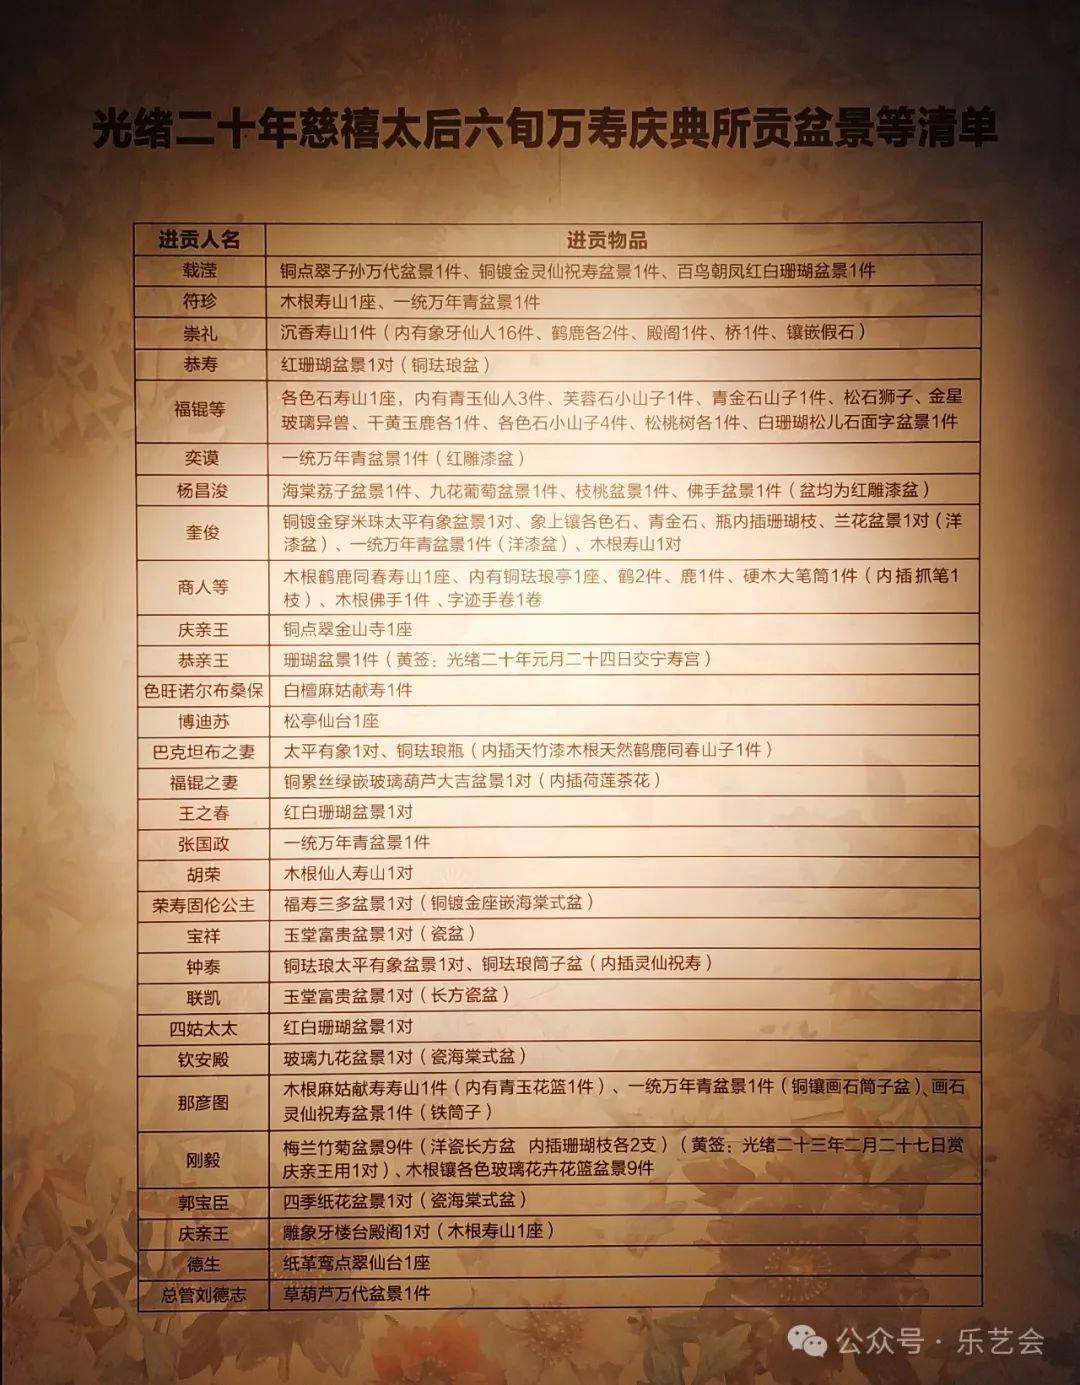 光绪二十年慈禧太后六旬万寿庆典所贡盆景等清单
进贡人名 进贡物品
载滢 铜点翠子孙万代盆景1件、铜镀金灵仙祝寿盆景1件、百鸟朝凤红白珊瑚盆景1件
符珍 木根寿山1座、一统万年青盆景1件
崇礼 沉香寿山1件（内有象牙仙人16件、鹤鹿各2件、殿阁1件、桥1件、镶嵌假石）
恭寿 红珊瑚盆景1对（铜珐琅盆）
福锟等 各色石寿山1座，内有青玉仙人3件、芙蓉石小山子1件、青金石山子1件、松石狮子、金星
玻璃异兽、干黄玉鹿各1件、各色石小山子4件、松桃树各1件、白珊瑚松儿石面字盆景1件
奕谟 一统万年青盆景1件（红雕漆盆）
杨昌浚 海棠荔子盆景1件、九花葡萄盆景1件、枝桃盆景1件、佛手盆景1件（盆均为红雕漆盆）
奎俊 铜镀金穿米珠太平有象盆景1对、象上镶各色石、青金石、瓶内插珊瑚枝、兰花盆景1对（洋
漆盆）、一统万年青盆景1件（洋漆盆）、木根寿山1对
商人等 木根鹤鹿同春寿山1座、内有铜珐琅亭1座、鹤2件、鹿1件、硬木大笔筒1件（内插抓笔1
枝）、木根佛手1件、字迹手卷1卷
庆亲王 铜点翠金山寺1座
恭亲王 珊瑚盆景1件（黄签：光绪二十年元月二十四日交宁寿宫）
色旺诺尔布桑保 白檀麻姑献寿1件
博迪苏 松亭仙台1座
巴克坦布之妻 太平有象1对、铜珐琅瓶（内插天竹漆木根天然鹤鹿同春山子1件）
福锟之妻 铜累丝绿嵌玻璃葫芦大吉盆景1对（内插荷莲茶花）
王之春 红白珊瑚盆景1对
张国政 一统万年青盆景1件
胡荣 木根仙人寿山1对
荣寿固伦公主 福寿三多盆景1对（铜镀金座嵌海棠式盆）
宝祥 玉堂富贵盆景1对（瓷盆）
钟泰 铜珐琅太平有象盆景1对、铜珐琅筒子盆（内插灵仙祝寿）
联凯 玉堂富贵盆景1对（长方瓷盆）
四姑太太 红白珊瑚盆景1对
钦安殿 玻璃九花盆景1对（瓷海棠式盆）
那彦图 木根麻姑献寿寿山1件（内有青玉花篮1件）、一统万年青盆景1件（铜镶画石筒子盆）、画石
灵仙祝寿盆景1件（铁筒子）
刚毅 梅兰竹菊盆景9件（洋瓷长方盆 内插珊瑚枝各2支）（黄签：光绪二十三年二月二十七日赏
庆亲王用1对）、木根镶各色玻璃花卉花篮盆景9件
郭宝臣 四季纸花盆景1对（瓷海棠式盆）
庆亲王 雕象牙楼台殿阁1对（木根寿山1座）
德生 纸革鸾点翠仙台1座
总管刘德志 草葫芦万代盆景1件
公众号·乐艺会